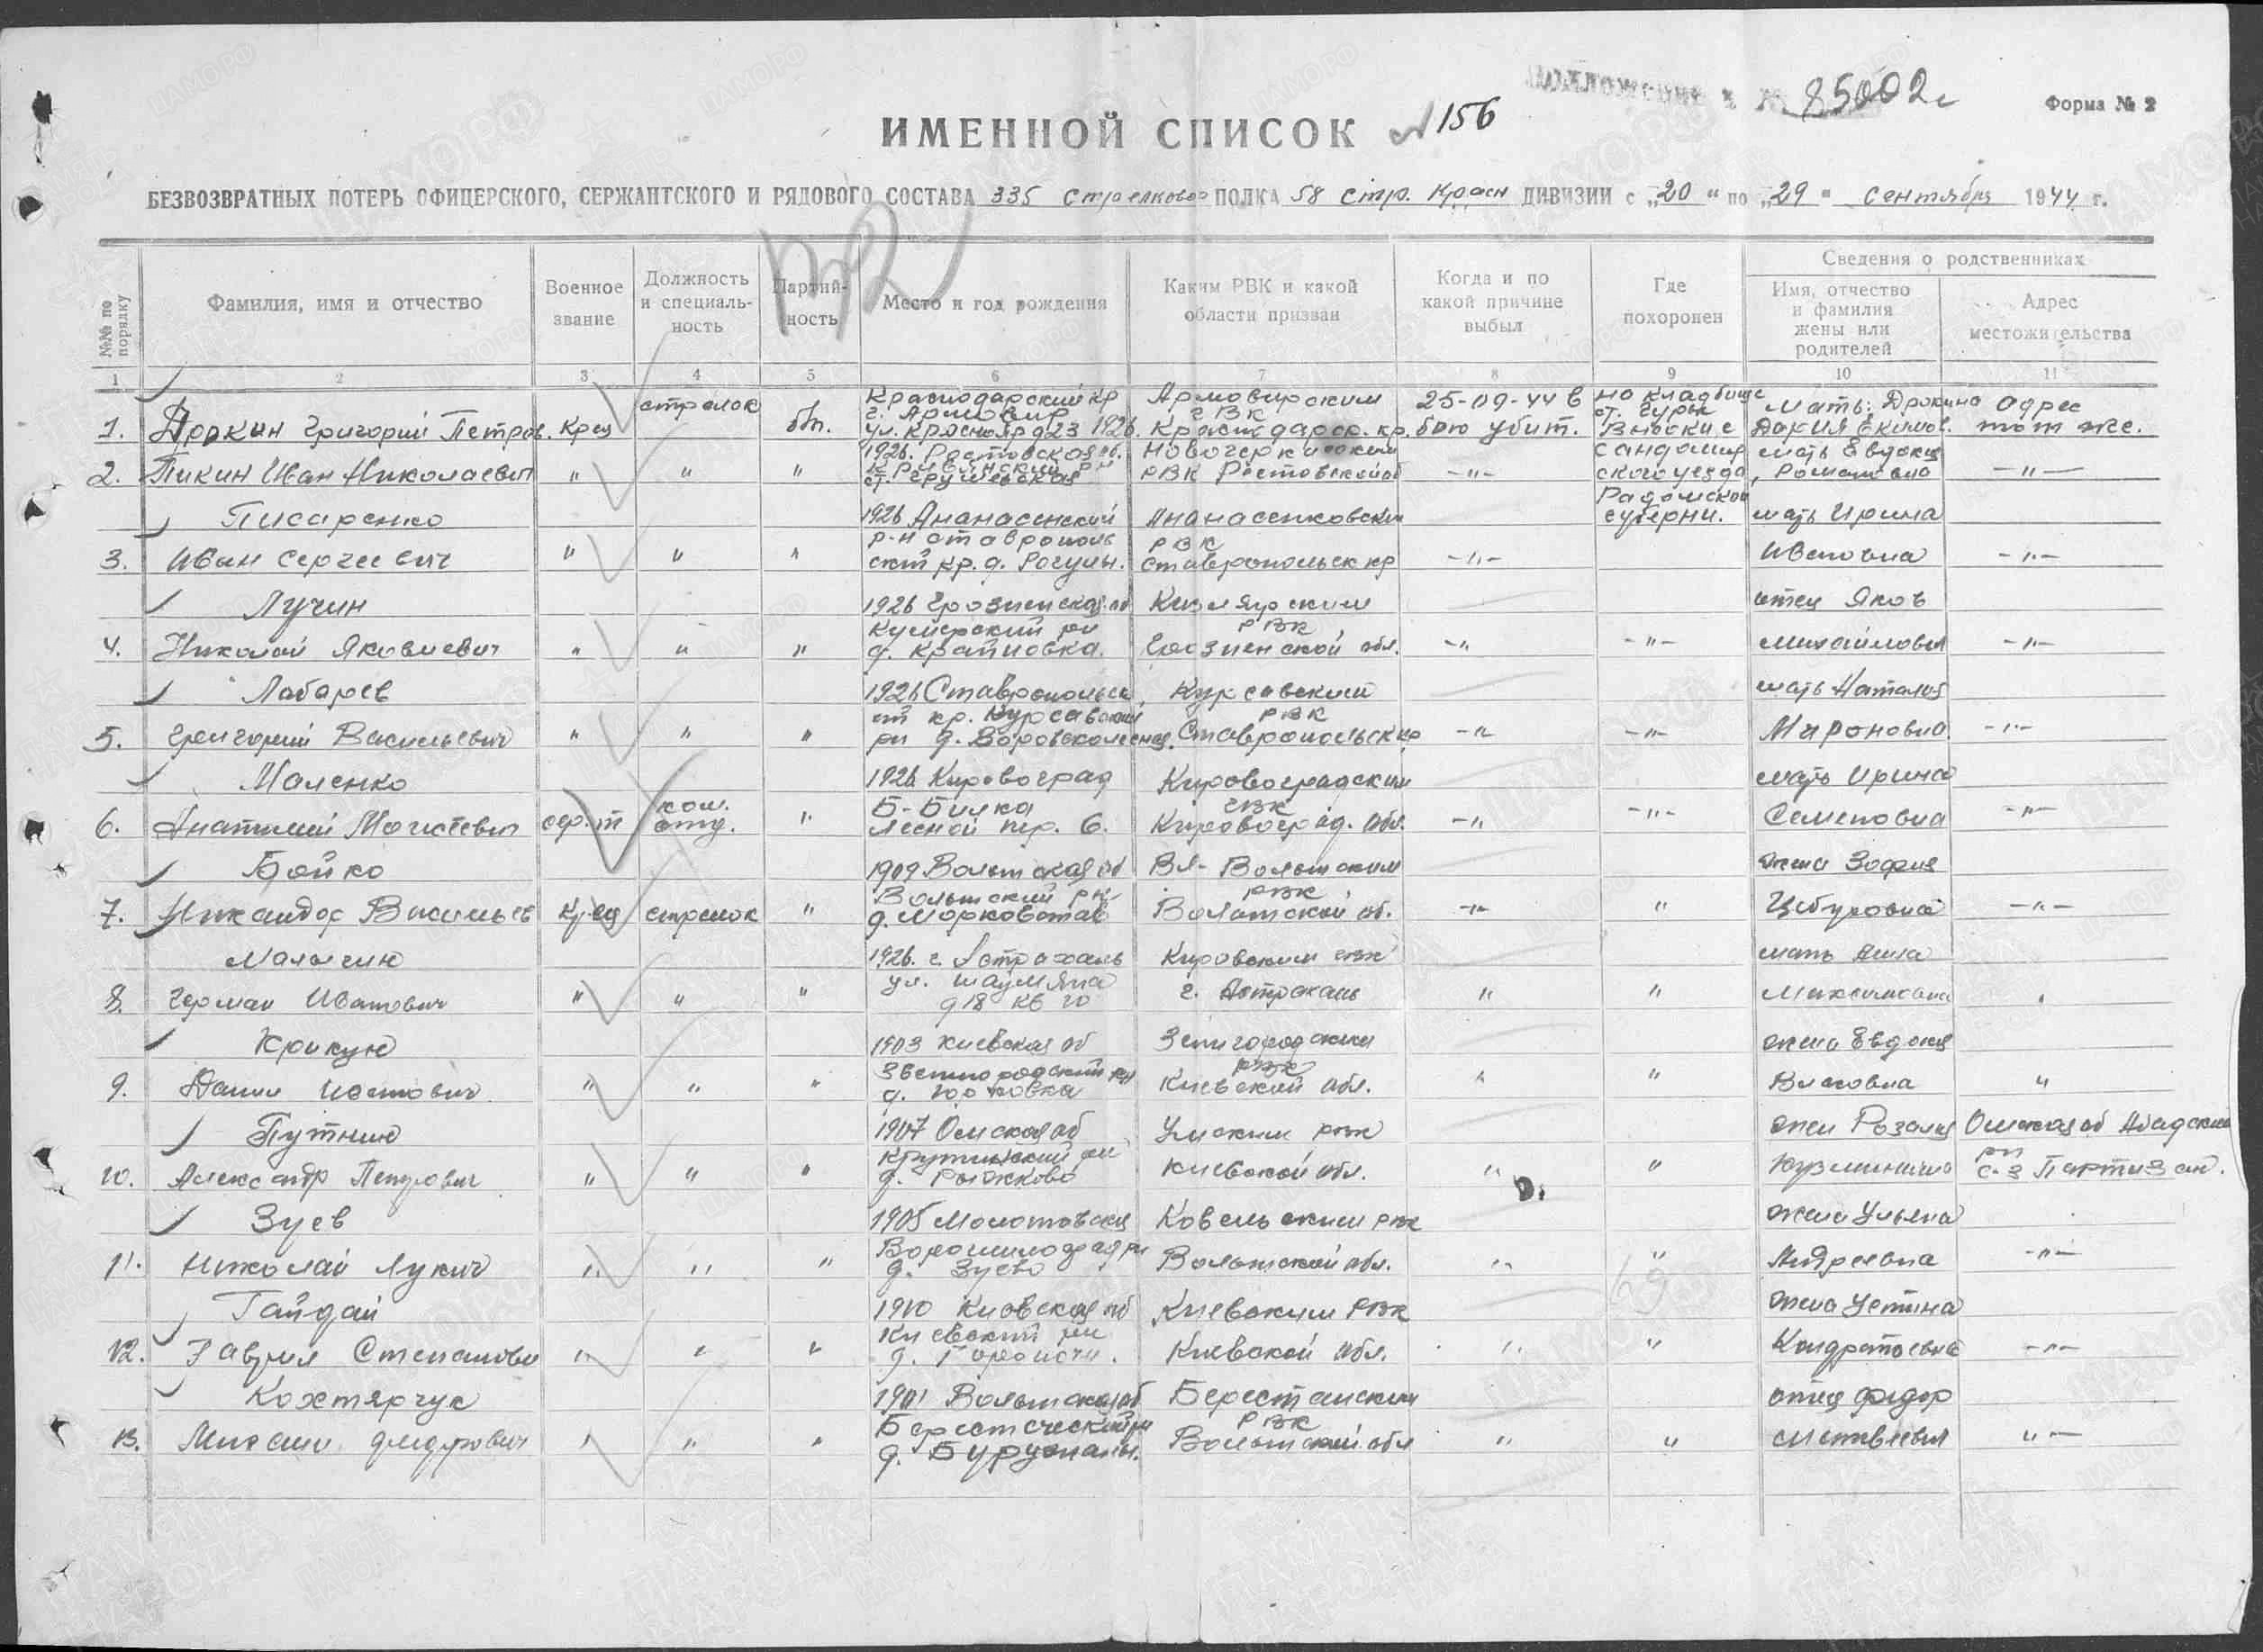 85002с
Форма № 2
ИМЕННОЙ СПИСОК № 156
БЕЗВОЗВРАТНЫХ ПОТЕРЬ ОФИЦЕРСКОГО, СЕРЖАНТСКОГО И РЯДОВОГО СОСТАВА 335 Стрелково ПОЛКА 58 Стр. Красн ДИВИЗИИ с „20“ по „29“ Сентября 1944 г.
№№ по порядку
Фамилия, имя и отчество
Военное звание
Должность и специаль-ность
Партий-ность
Место и год рождения
Каким РВК и какой области призван
Когда и по какой причине выбыл
Где похоронен
Сведения о родственниках
Имя, отчество и фамилия жены или родителей
Адрес местожительства
1 2 3 4 5 6 7 8 9 10 11
1. Дрокин Григорий Петров. Крец стрелок бп. Краснодарский кр г. Армовир ул. Краснояр д 23 1926. Армовирским ГВК Краснодарск. кр. 25-09-44 в бою убит. на кладбище ст. Мать: Дрокина Дария Екимов. адрес тот же.
2. Пикин Иван Николаевич " " " 1926. Ростовская об. РВК Ростовской об -"- Сандомир ского уезда, Радомской губерни. мать Евдокия Романовна -"-
Писаренко
3. Иван Сергеевич " " " 1926 Ананасенский р-н ставрополь ский кр. д. Рагулы. Ананасенковским РВК Ставропольск кр -"- мать Ирина Ивановна -"-
Лучин
4. Николай Яковлевич " " " 1926 Грозненская об рн д. Крайновка. Кизлярским РВК Грозненской обл. -" -"- отец Яков Михайлович -"-
Лабарев
5. Григорий Васильевич " " " 1926 Ставропольск ий кр. Курсавский рн д. Воровсколесная. Курсавский РВК Ставропольск кр -" -"- мать Наталия Мироновна -"-
Маленко
6. Анатолий сер-т ком. отд. " 1926 Кировоград Б-Билка Лесной пер. 6. Кировоградским ГВК Кировоград. обл. -" -"- мать Ирина Семеновна -"-
Бойко
7. Никандор Васильев Кр-ец стрелок " 1909 Волынская об Волынский рн д. Вл-Волынским РВК Волынской об. -"- " жена Зофия -"-
Малыгин
8. Герман Иванович " " " 1926. г. Астрахань ул. Шаумяна д 18 кв 10 Кировским РВК г. Астрахань " " мать Анна "
Крикун
9. Данил " " " 1903 Киевская об рн д. РВК Киевский обл. " " жена Евдокия "
Путнин
10. Александр Петрович " " " 1907 Омская об Крутинский рн д. Рыжково Уманским РВК Киевской обл. " " жена Розалия Омская об Абадский рн с-з Партизан.
Зуев
11. Николай Лукич " " " 1905 Молотовская д. Зуево Ковельским РВК Волынской обл. " " жена Ульяна Андреевна -"-
Гайдай
12. Гаврил Степанович " " " 1910 Киевская об Киевский рн д. Киевским РВК Киевской обл. " " жена Устина Кондратьевна -"-
Кохтярчук
13. Михаил Федорович " " " 1901 Волынская об Берестеческий рн д. РВК Волынской обл " " отец Федор Матвеевич "-